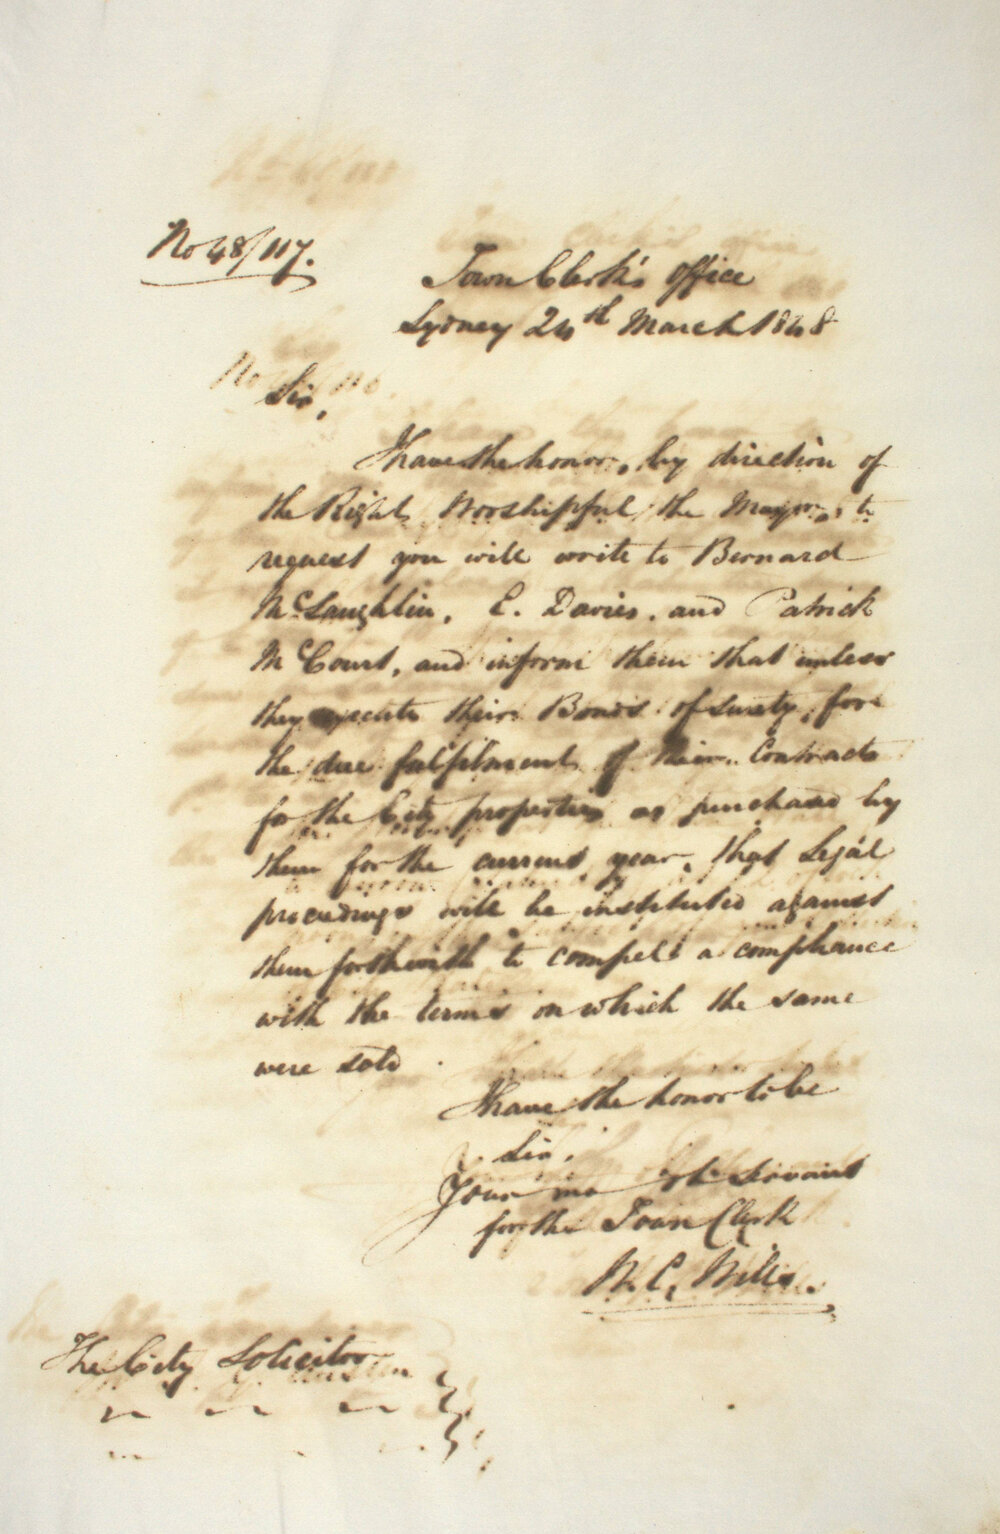 No 48/117.
Town Clerk's Office
Sydney 24th March 1848
Sir,
I have the honor, by direction of
the Right Worshipful the Mayor, to
request you will write to Bernard
McLaughlin, E. Davies, and Patrick
McCourt, and inform them that unless
they execute their Bonds of Surety, for
the due fulfilment of their Contracts
for the City properties as purchased by
them for the current year, that Legal
proceedings will be instituted against
them forthwith to compel a compliance
with the terms on which the same
were sold.
I have the honor to be
Sir,
Your mo obt Servant
for the Town Clerk
W. C. Wills.
The City Solicitor